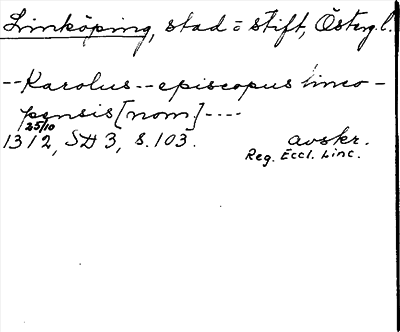 Linköping, stad = stift, Österg. l.
-- Karolus -- episcopus linco-
pensis [nom.] ----
25/10
1312, SD 3, s. 103. avskr.
Reg. Eccl. Linc.